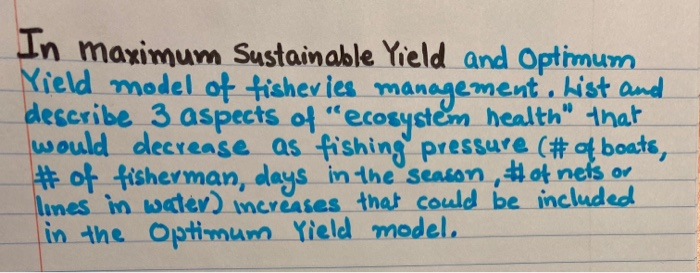 In maximum Sustainable Yield and Optimum
Yield model of fisheries management. List and
describe 3 aspects of "ecosystem health" that
would decrease as fishing pressure (# of boats,
# of fisherman, days in the season, # of nets or
lines in water) increases that could be included
in the Optimum Yield model.